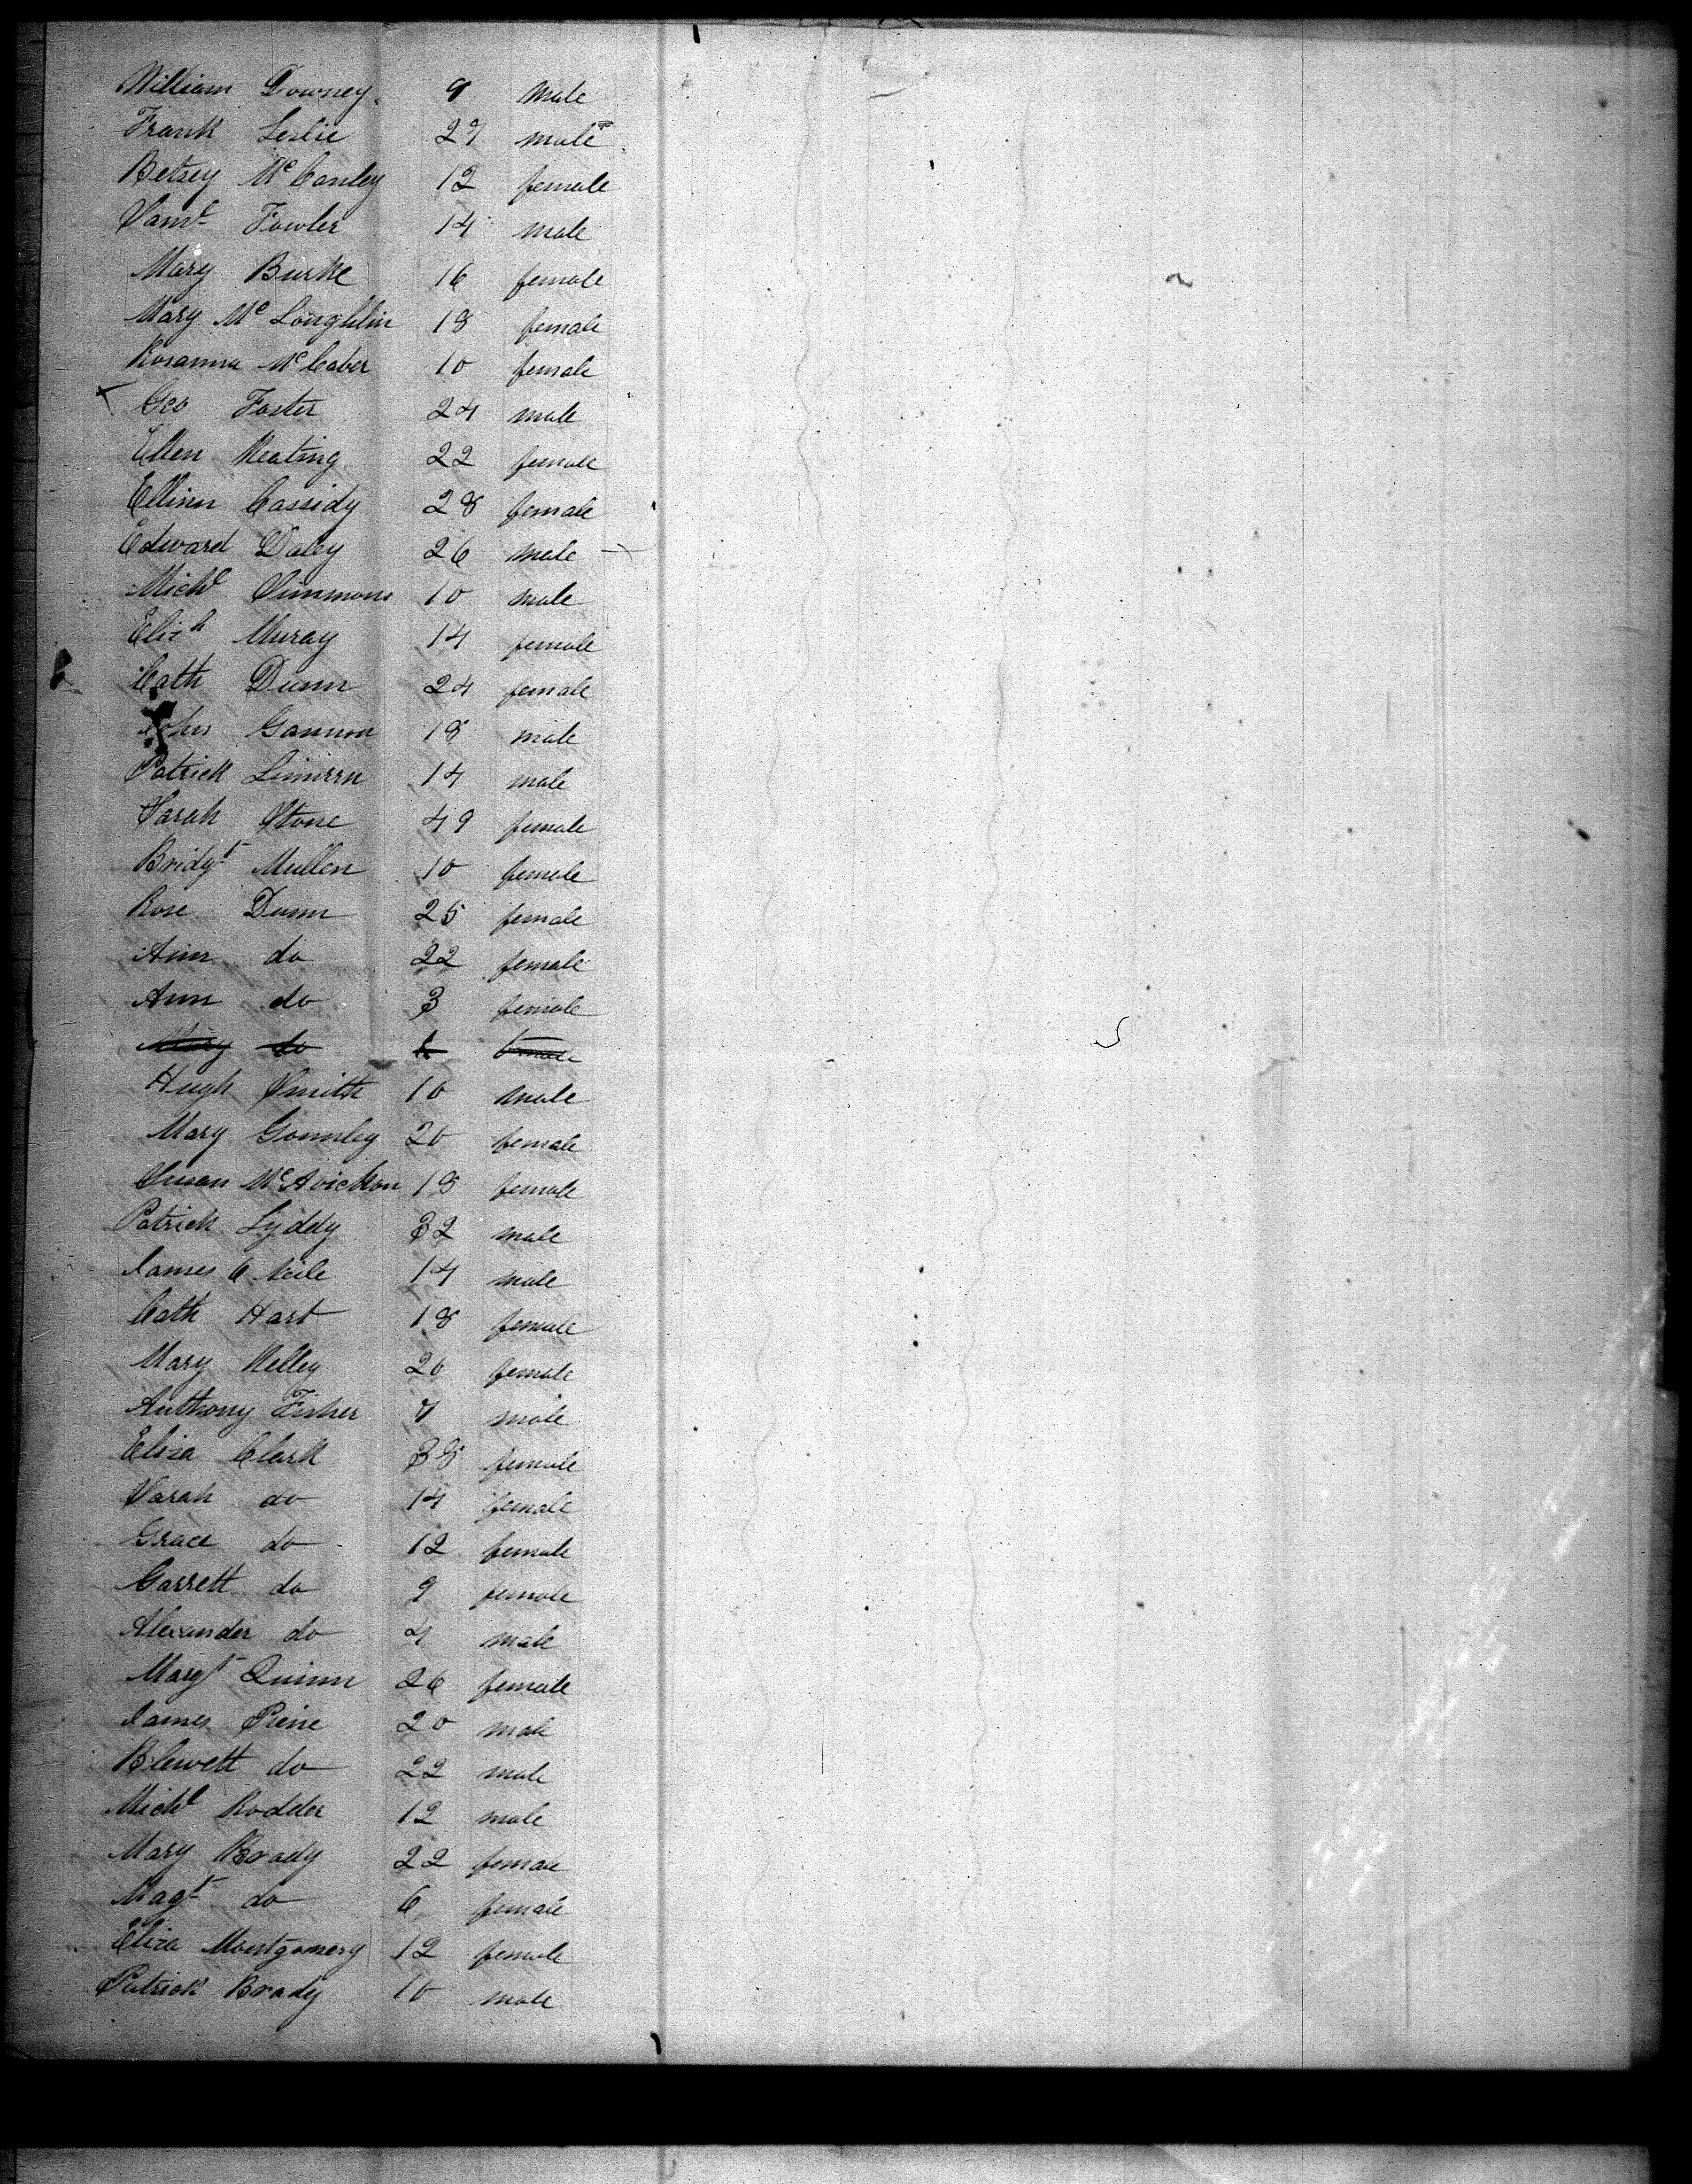 William Downey 9 male
Frank Leslie 27 male
Betsey McCanley 12 female
Saml Fowler 14 male
Mary Burke 16 female
Mary McLoughlin 18 female
Rosanna McCaber 10 female
Geo Foster 24 male
Ellen Keating 22 female
Ellinn Cassidy 28 female
Edward Daley 26 male
Michl Simmons 10 male
Elizh Muray 14 female
Cath Dunn 24 female
John Gannon 18 male
Patrick 14 male
Sarah Stone 49 female
Bridgt Mullen 10 female
Rose Dunn 25 female
Ann do 22 female
Ann do 3 female
Mary do female
Hugh Smith 10 male
Mary Gormley 20 female
Susan 18 female
Patrick Lyddy 32 male
James O Neile 14 male
Cath Hart 18 female
Mary Kelley 20 female
Anthony Fisher 7 male
Eliza Clark 38 female
Sarah do 14 female
Grace do 12 female
Garrett do 9 female
Alexander do 4 male
Margt Quinn 26 female
James 20 male
Blewett do 22 male
Michl Rodder 12 male
Mary Brady 22 female
Magt do 6 female
Eliza Montgomery 12 female
Patrick Brady 10 male